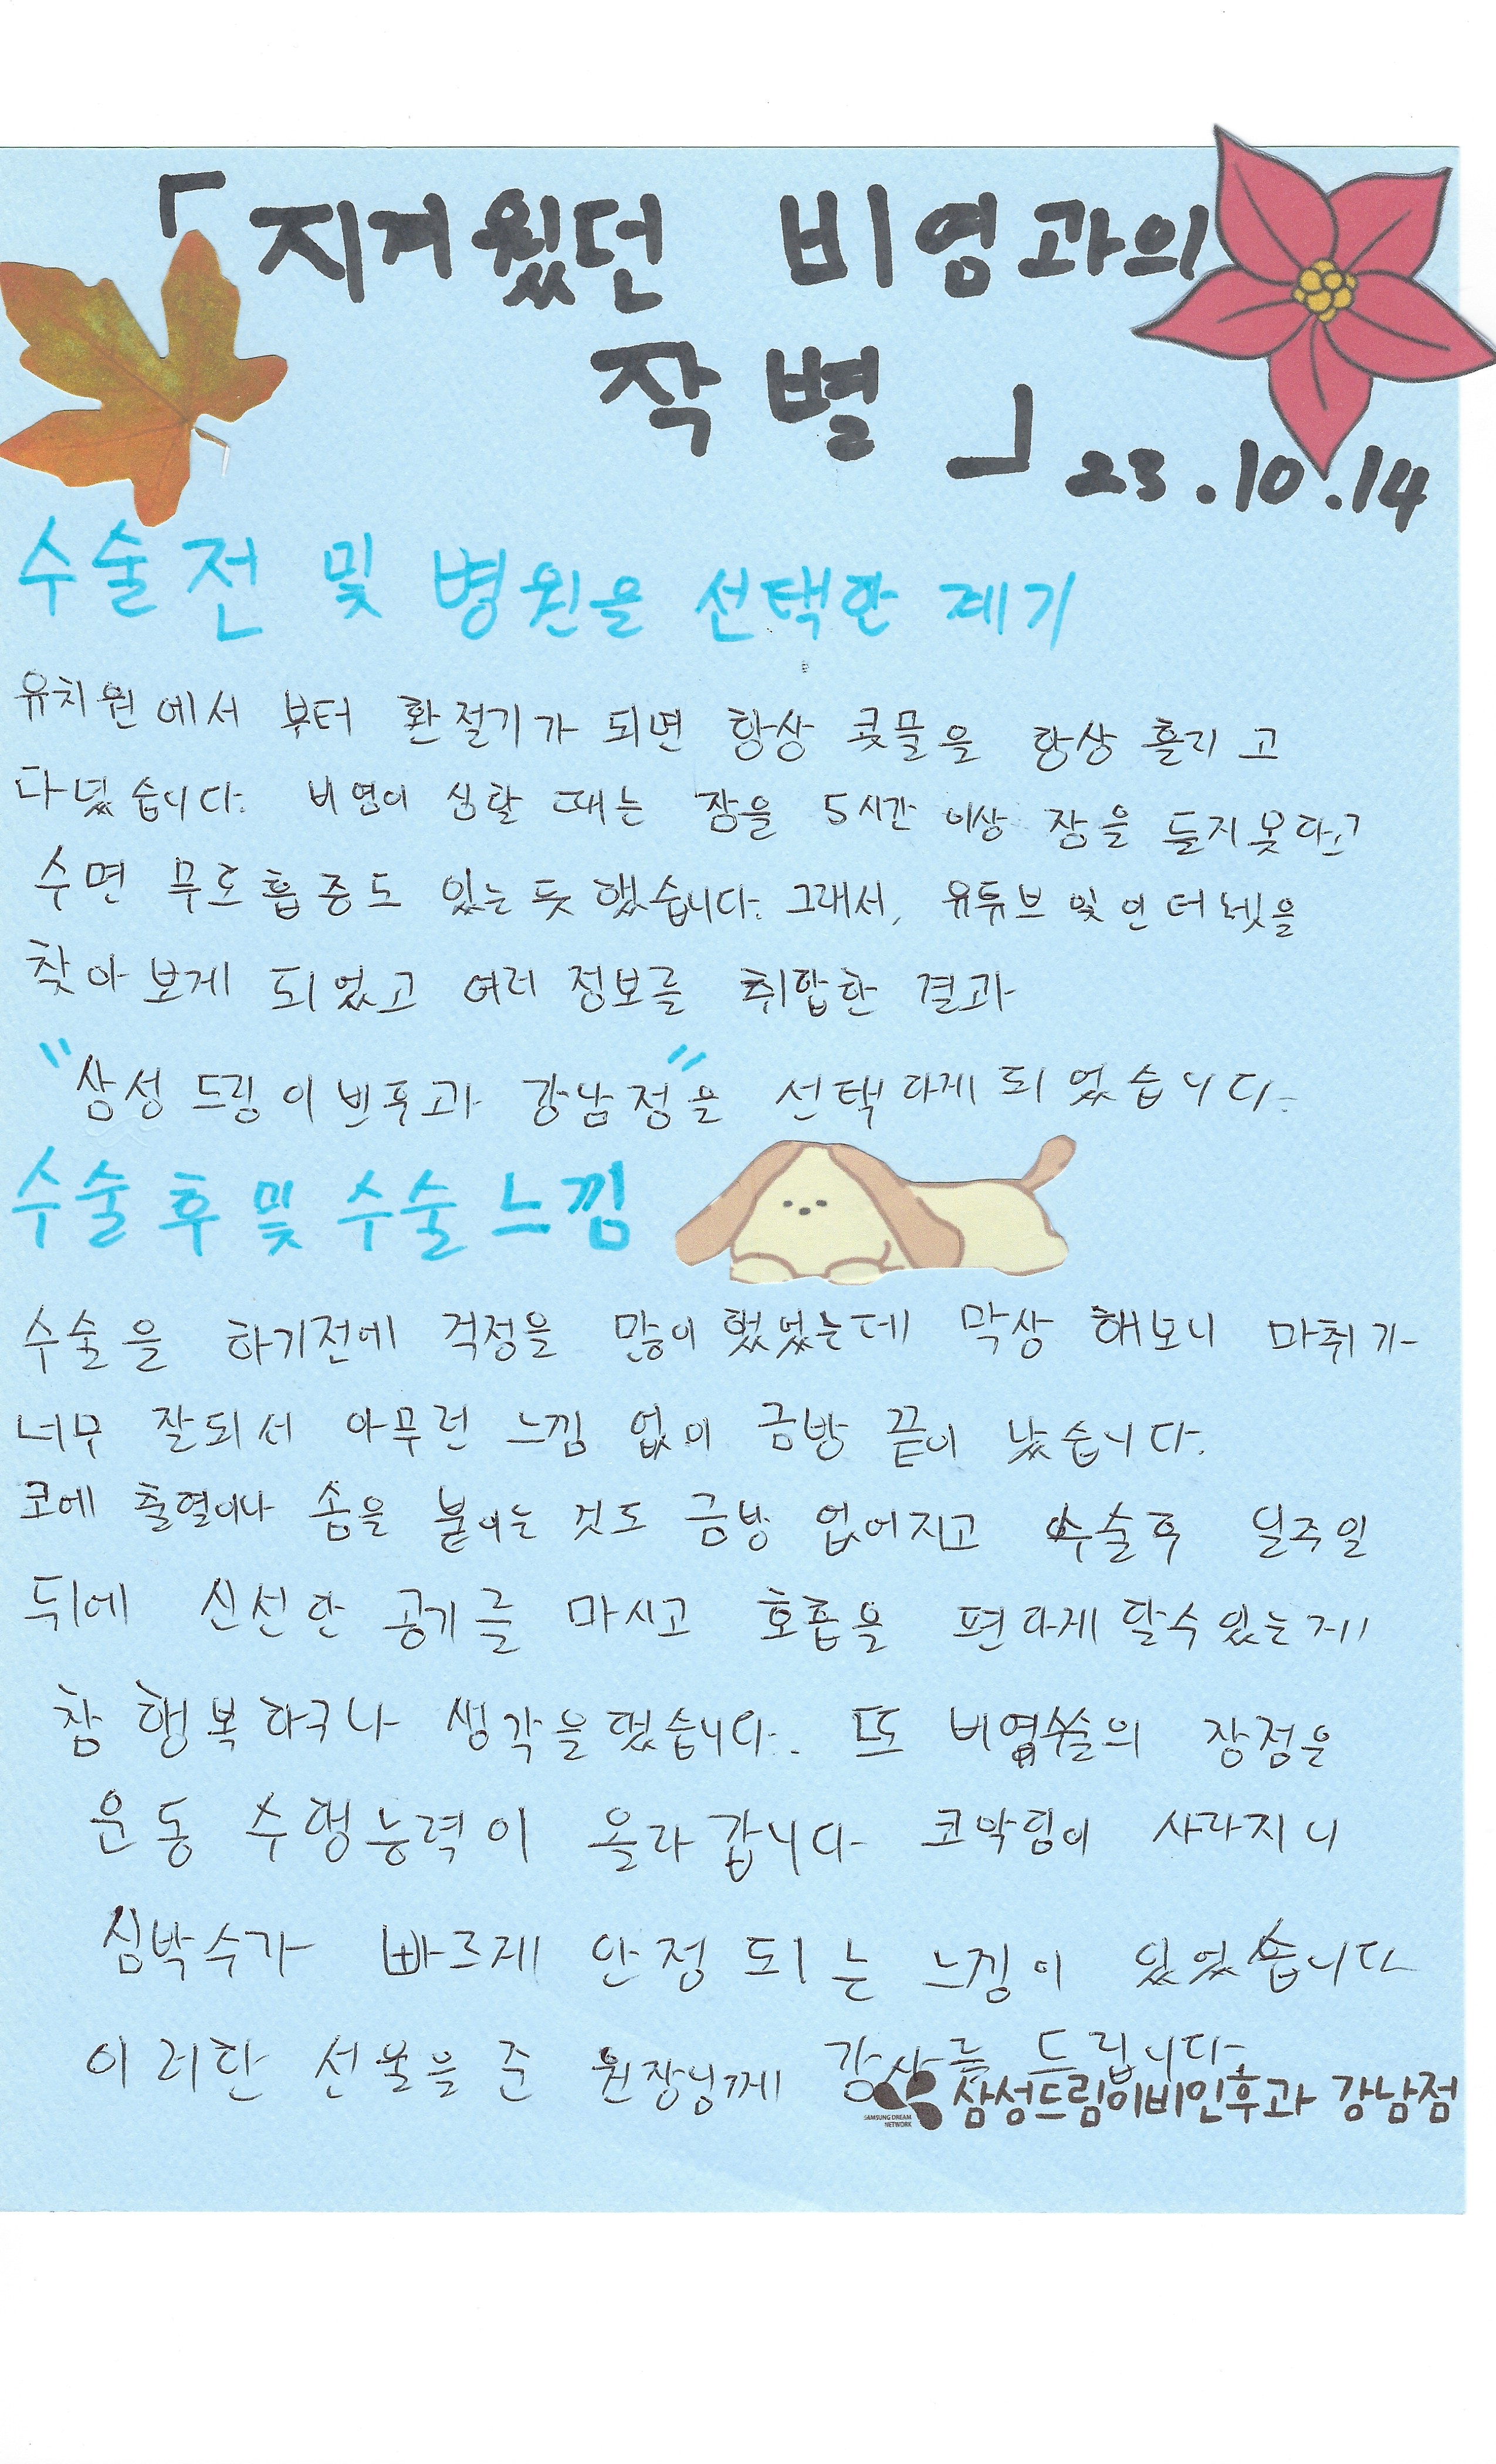 「지겨웠던 비염과의
작별」 23.10.14
수술전 및 병원을 선택한 계기
유치원에서 부터 환절기가 되면 항상 콧물을 항상 흘리고
다녔습니다. 비염이 심할 때는 잠을 5시간 이상 잠을 들지못하고
수면 무호흡증도 있는듯 했습니다. 그래서, 유튜브 및 인터넷을
찾아보게 되었고 여러 정보를 취합한 결과
"삼성드림이빈후과 강남점"을 선택하게되었습니다.
수술후 및 수술느낌
수술을 하기전에 걱정을 많이 했었는데 막상 해보니 마취가
너무 잘되서 아무런 느낌 없이 금방 끝이 났습니다.
코에 출혈이나 솜을 붙이는 것도 금방 없어지고 수술후 일주일
뒤에 신선한 공기를 마시고 호흡을 편하게 할수있는게
참 행복하구나 생각을했습니다. 또 비염수술의 장점은
운동 수행능력이 올라갑니다 코막힘이 사라지니
심박수가 빠르게 안정되는 느낌이 있었습니다
이러한 선물을 준 원장님께 감사를 드립니다.
SAMSUNG DREAM NETWORK 삼성드림이비인후과 강남점